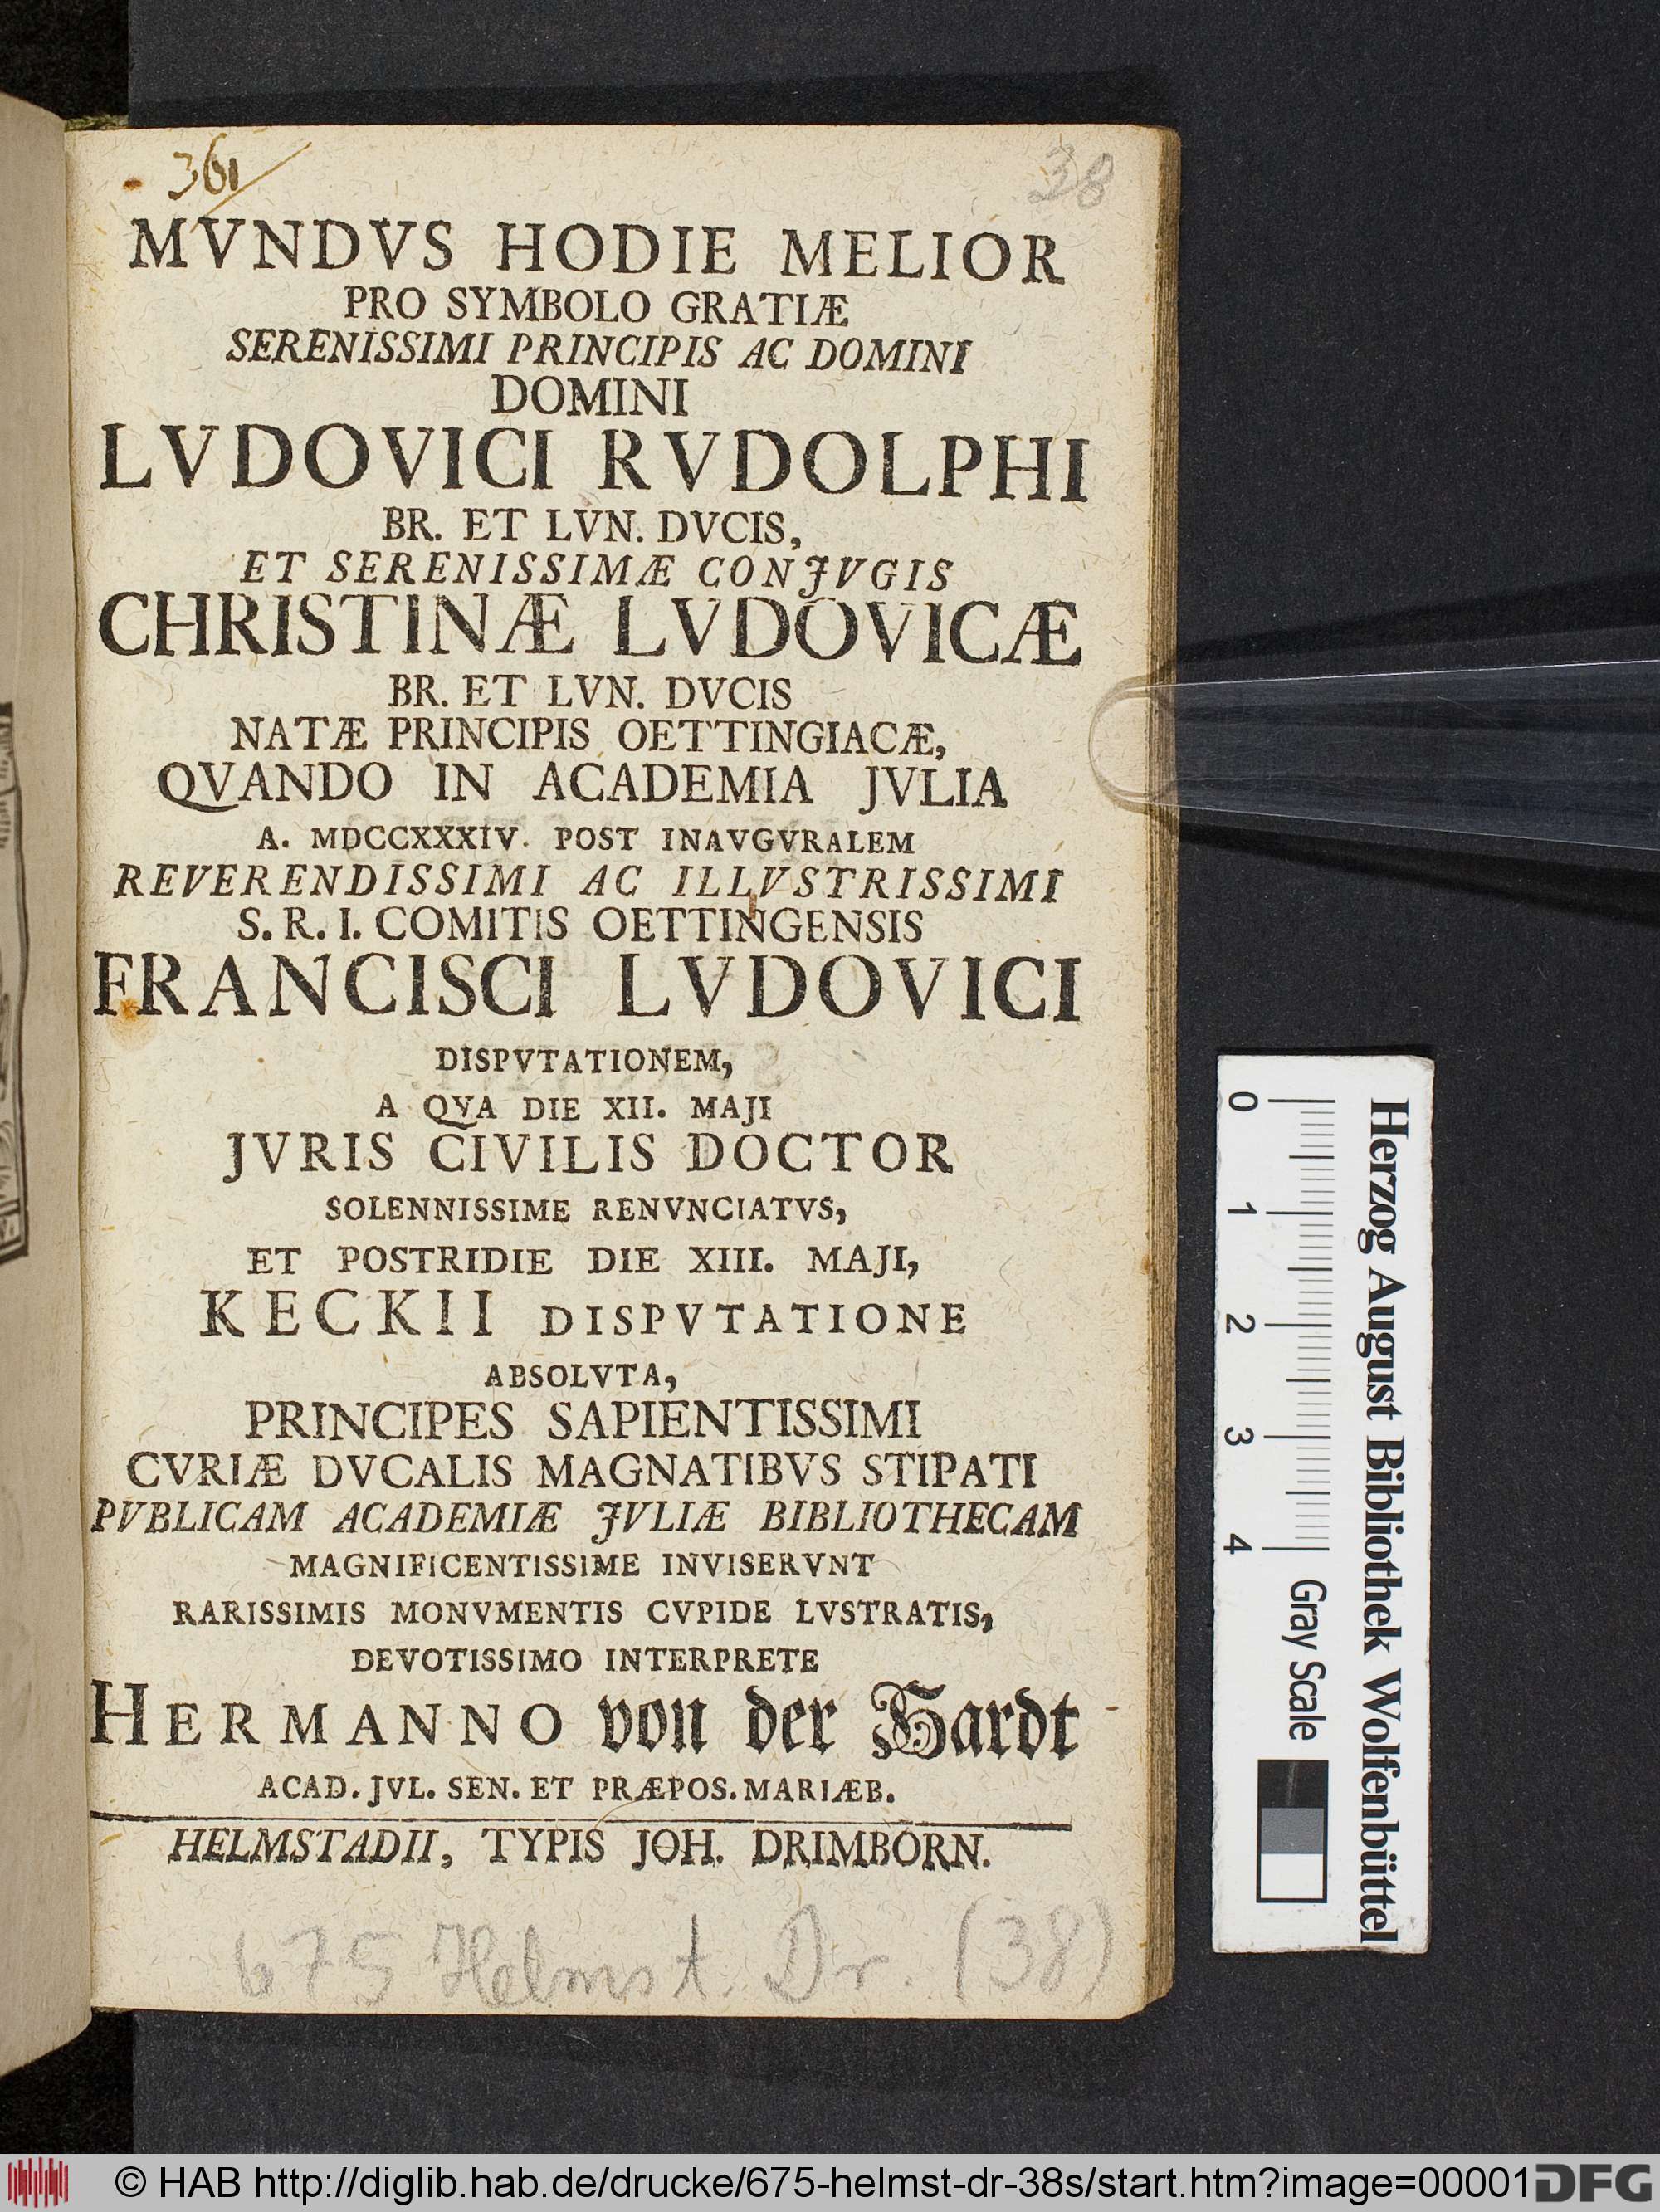 361
38
MVNDVS HODIE MELIOR
PRO SYMBOLO GRATIÆ
SERENISSIMI PRINCIPIS AC DOMINI
DOMINI
LVDOVICI RVDOLPHI
BR. ET LVN. DVCIS,
ET SERENISSIMÆ CONJVGIS
CHRISTINÆ LVDOVICÆ
BR. ET LVN. DVCIS
NATÆ PRINCIPIS OETTINGIACÆ,
QVANDO IN ACADEMIA JVLIA
A. MDCCXXXIV. POST INAVGVRALEM
REVERENDISSIMI AC ILLVSTRISSIMI
S. R. I. COMITIS OETTINGENSIS
FRANCISCI LVDOVICI
DISPVTATIONEM,
A QVA DIE XII. MAJI
JVRIS CIVILIS DOCTOR
SOLENNISSIME RENVNCIATVS,
ET POSTRIDIE DIE XIII. MAJI,
KECKII DISPVTATIONE
ABSOLVTA,
PRINCIPES SAPIENTISSIMI
CVRIÆ DVCALIS MAGNATIBVS STIPATI
PVBLICAM ACADEMIÆ JVLIÆ BIBLIOTHECAM
MAGNIFICENTISSIME INVISERVNT
RARISSIMIS MONVMENTIS CVPIDE LVSTRATIS,
DEVOTISSIMO INTERPRETE
HERMANNO von der Hardt
ACAD. JVL. SEN. ET PRÆPOS. MARIÆB.
HELMSTADII, TYPIS JOH. DRIMBORN.
675 Helmst. Dr. (38)
Herzog August Bibliothek Wolfenbüttel
0 1 2 3 4 Gray Scale
© HAB http://diglib.hab.de/drucke/675-helmst-dr-38s/start.htm?image=00001
DFG